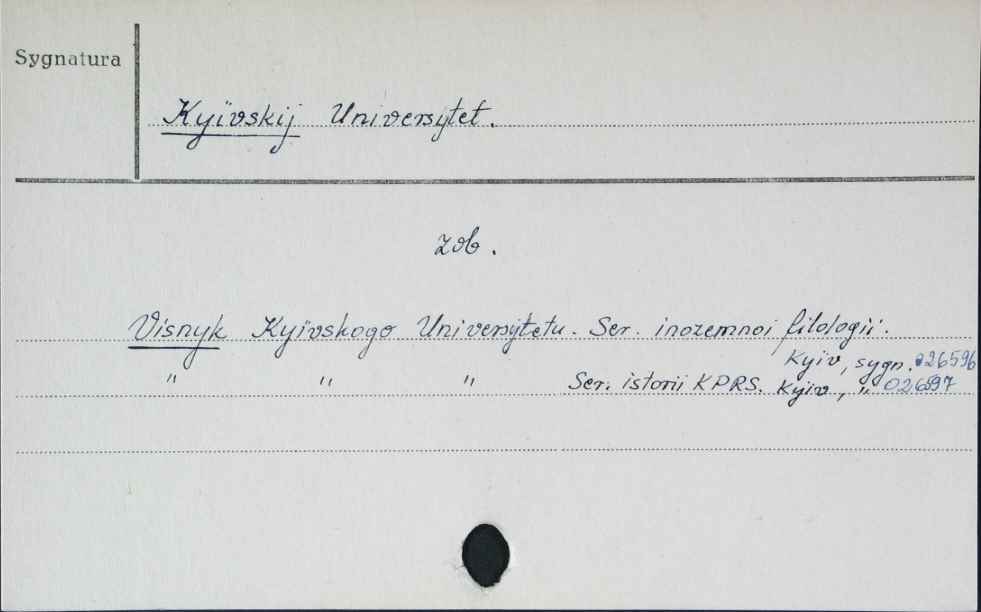 Sygnatura
Kyïvskij Universytet.
zob.
Visnyk Kyïvskogo Universytetu. Ser. inozemnoi filologii.
Kyiv, sygn. 026596
" " " Ser. istorii KPRS. Kyiv, " 026597